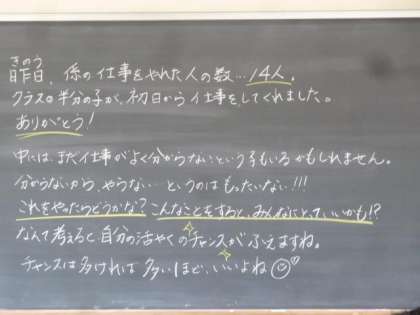 きのう
昨日、係の仕事をやれた人の数…14人。
クラスの半分の子が、初日から仕事をしてくれました。
ありがとう!
中には、まだ仕事がよく分からないという子もいるかもしれません。
分からないから、やらない…というのはもったいない!!!
これをやったらどうかな?こんなことをすると、みんなにとっていいかも!?
なんて考えると自分の活やくのチャンスがふえますね。
チャンスは多ければ多いほど、いいよね